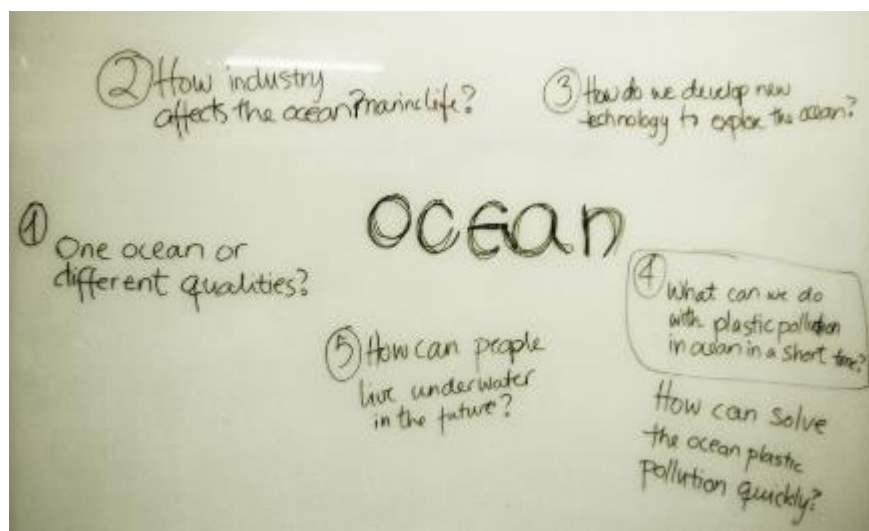 ② How industry
affects the ocean? marine life?
③ How do we develop new
technology to explore the ocean?
ocean
① One ocean or
different qualities?
④ What can we do
with plastic pollution
in ocean in a short time?
⑤ How can people
live underwater
in the future?
How can solve
the ocean plastic
pollution quickly?